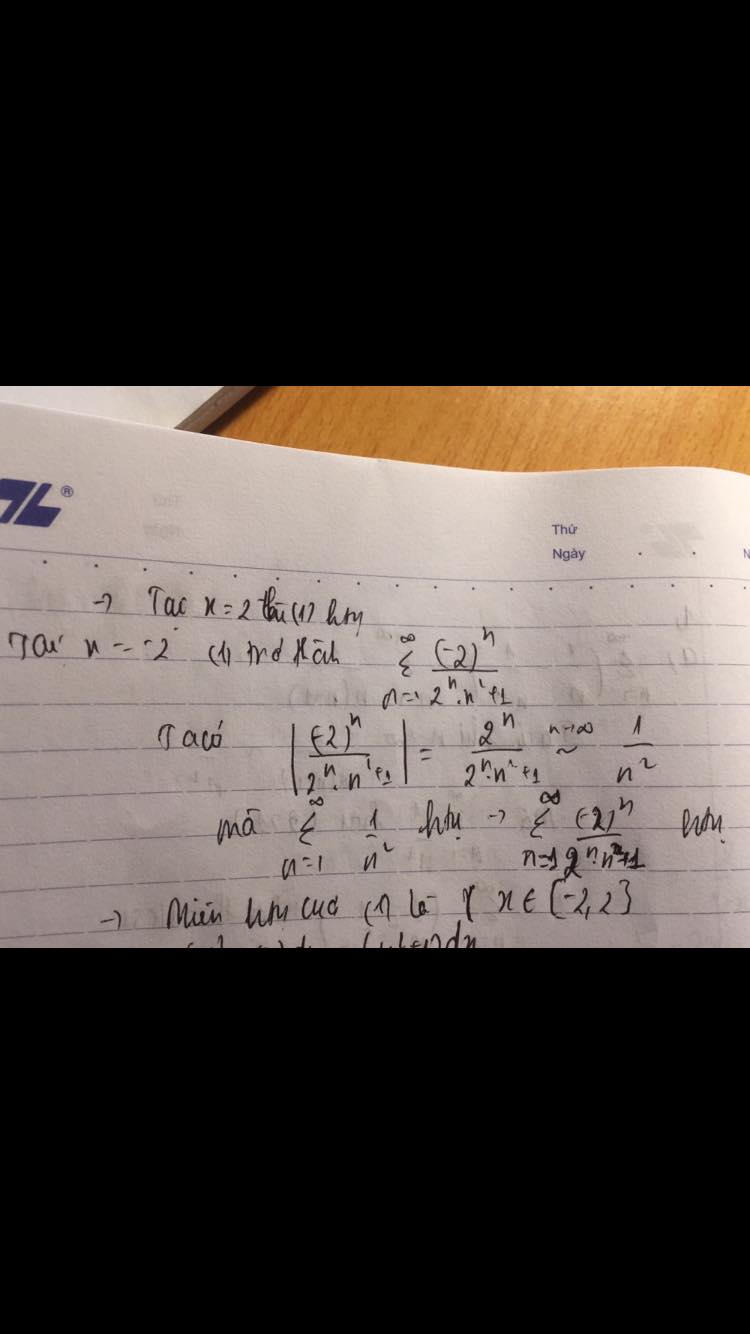 ®
Thứ
Ngày
→ Tại x = 2 thì (1) htụ
Tại x = -2 (1) trở thành ∑_{n=1}^{∞} (-2)^n / (2^n.n²+1)
Ta có |(-2)^n / (2^n.n²+1)| = 2^n / (2^n.n²+1) ~^{n→∞} 1/n²
mà ∑_{n=1}^{∞} 1/n² htụ → ∑_{n=1}^{∞} (-2)^n / (2^n.n²+1) htụ
→ Miền htụ của (1) là ∀ x ∈ [-2,2]